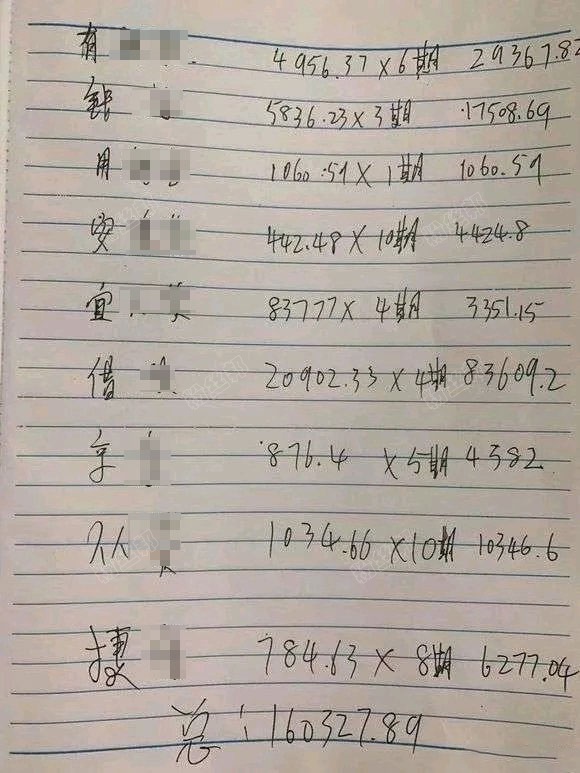 有 4956.37×6期 29367.82
邮 5836.23×3期 17508.69
用 1060.59×1期 1060.59
安 442.48×10期 4424.8
宜 837.77× 4期 3351.15
借 20902.33×4期 83609.2
京 876.4 ×5期 4382
人人 1034.66×10期 10346.6
捷 784.63× 8期 6277.04
总:160327.89